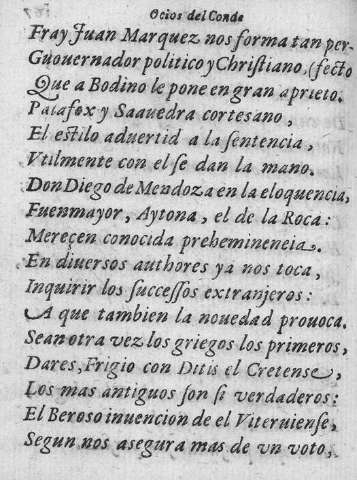 Ocios del Conde
Fray Juan Marquez nos forma tan per-
Guouernador politico y Christiano, (fecto
Que a Bodino le pone en gran aprieto.
Palafox y Saauedra cortesano,
El estilo aduertid a la sentencia,
Vtilmente con el se dan la mano.
Don Diego de Mendoza en la eloquencia,
Fuenmayor, Aytona, el de la Roca:
Mereçen conocida preheminencia.
En diuersos authores ya nos toca,
Inquirir los successos extranjeros:
A que tambien la nouedad prouoca.
Sean otra vez los griegos los primeros,
Dares, Frigio con Ditis el Cretense,
Los mas antiguos son si verdaderos:
El Beroso inuencion de el Viteruiense,
Segun nos asegura mas de vn voto,